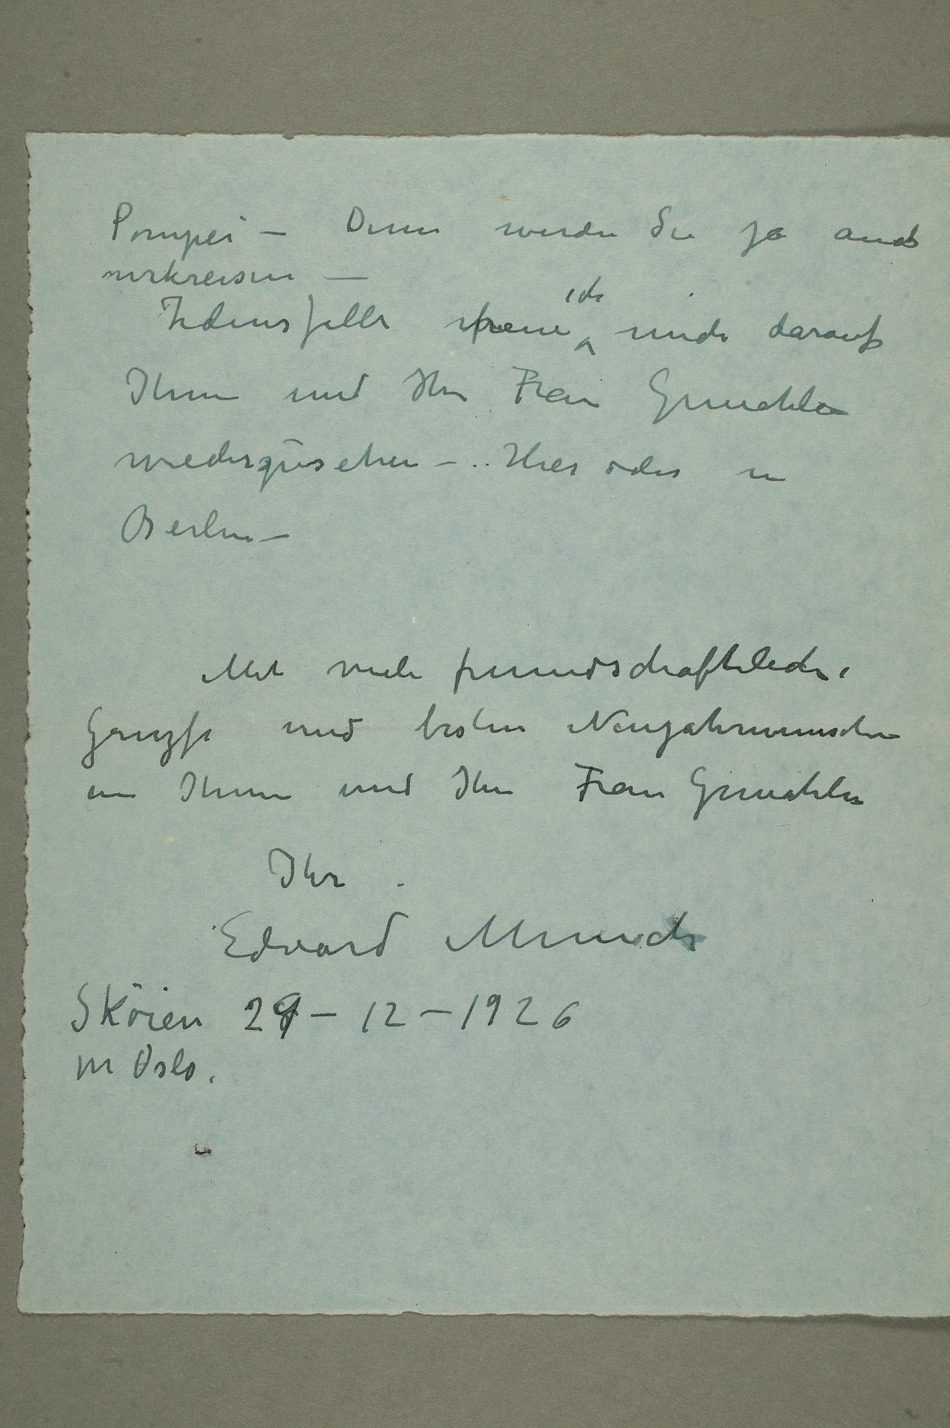 Pompei – Denn werden Sie ja auch
umkreisen –
Jedensfalls freue ich mich darauf
Ihnen und Ihr Frau Gemahlin
wiederzusehen – .. Hier oder in
Berlin –
Mit viele freundschaftlichr
Gruzse und besten Neujahrwunschen
an Ihnen und Ihr Frau Gemahlin
Ihr
Edvard Munch
Sköien 29 – 12 – 1926
pr Oslo.